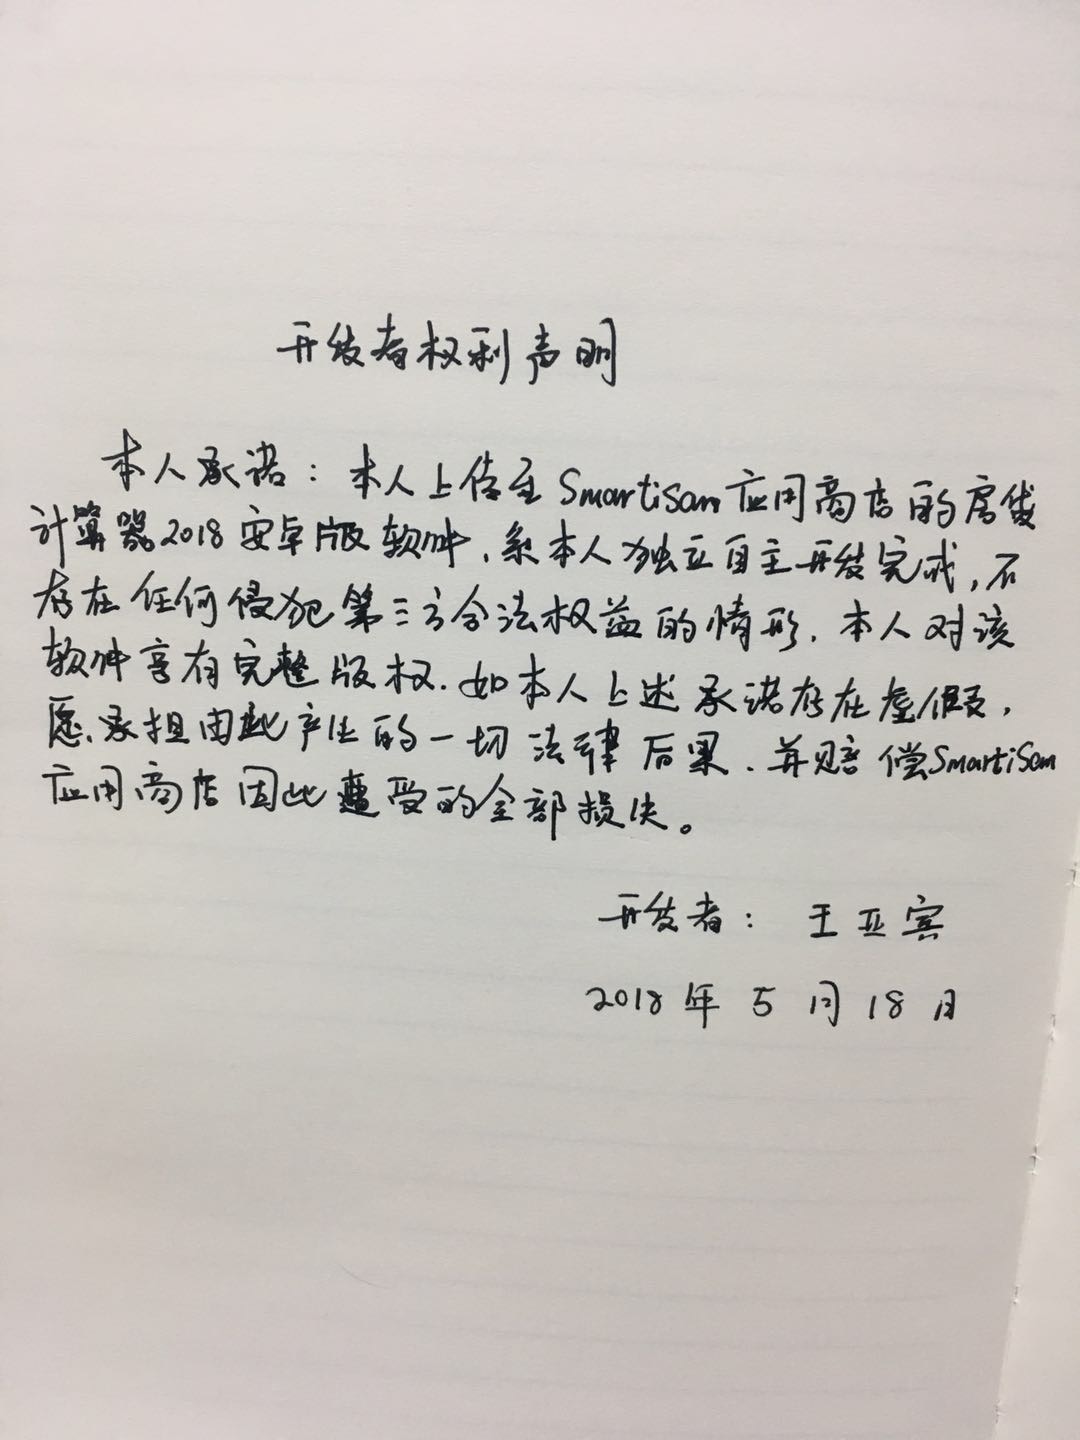 开发者权利声明
本人承诺：本人上传至Smartisan应用商店的房贷
计算器2018安卓版软件，系本人独立自主开发完成，不
存在任何侵犯第三方合法权益的情形，本人对该
软件享有完整版权．如本人上述承诺存在虚假，
愿承担由此产生的一切法律后果，并赔偿Smartisan
应用商店因此遭受的全部损失。
开发者：王亚宾
2018年5月18日